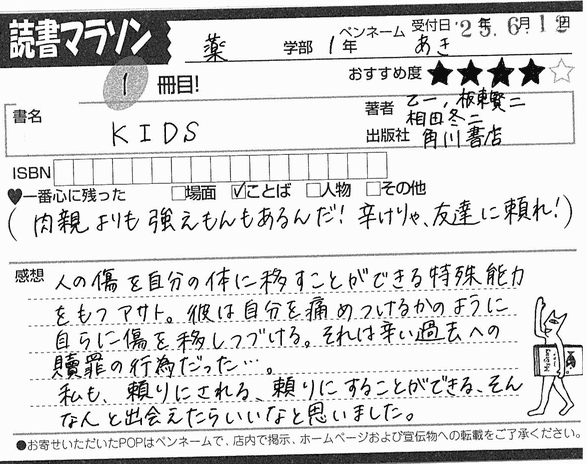 読書マラソン
薬 学部 1年 ペンネーム あき 受付日 '25年6月12日
1 冊目! おすすめ度 ★★★★☆
書名 KIDS
著者 乙一, 板東賢二
相田冬二
出版社 角川書店
ISBN
♥一番心に残った □場面 ☑ことば □人物 □その他
(肉親よりも強えもんもあるんだ! 辛けりゃ、友達に頼れ!)
感想 人の傷を自分の体に移すことができる特殊能力
をもつアサト。彼は自分を痛めつけるかのように
自らに傷を移しつづける。それは辛い過去への
贖罪の行為だった…。
私も、頼りにされる、頼りにすることができる、そん
なんと出会えたらいいなと思いました。
●お寄せいただいたPOPはペンネームで、店内で掲示、ホームページおよび宣伝物への転載をご了承ください。